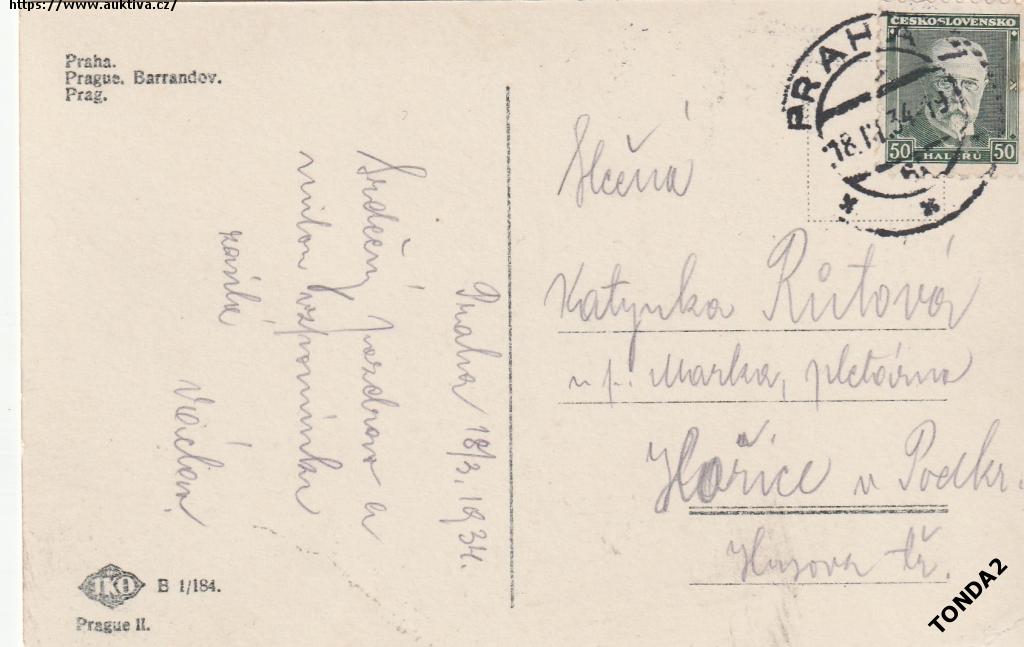 https://www.auktiva.cz/
Praha.
Prague. Barrandov.
Prag.
Praha 18/3. 1934.
Srdečný pozdrav a
milou vzpomínku
zasílá
Václav.
B 1/184.
Prague II.
PRAHA
18.III.34
ČESKOSLOVENSKO
50 HALÉŘŮ 50
Slečna
Katynka Růtová
u p. Marka, pletárna
Hořice v Podkr.
Husova tř.
TONDA2